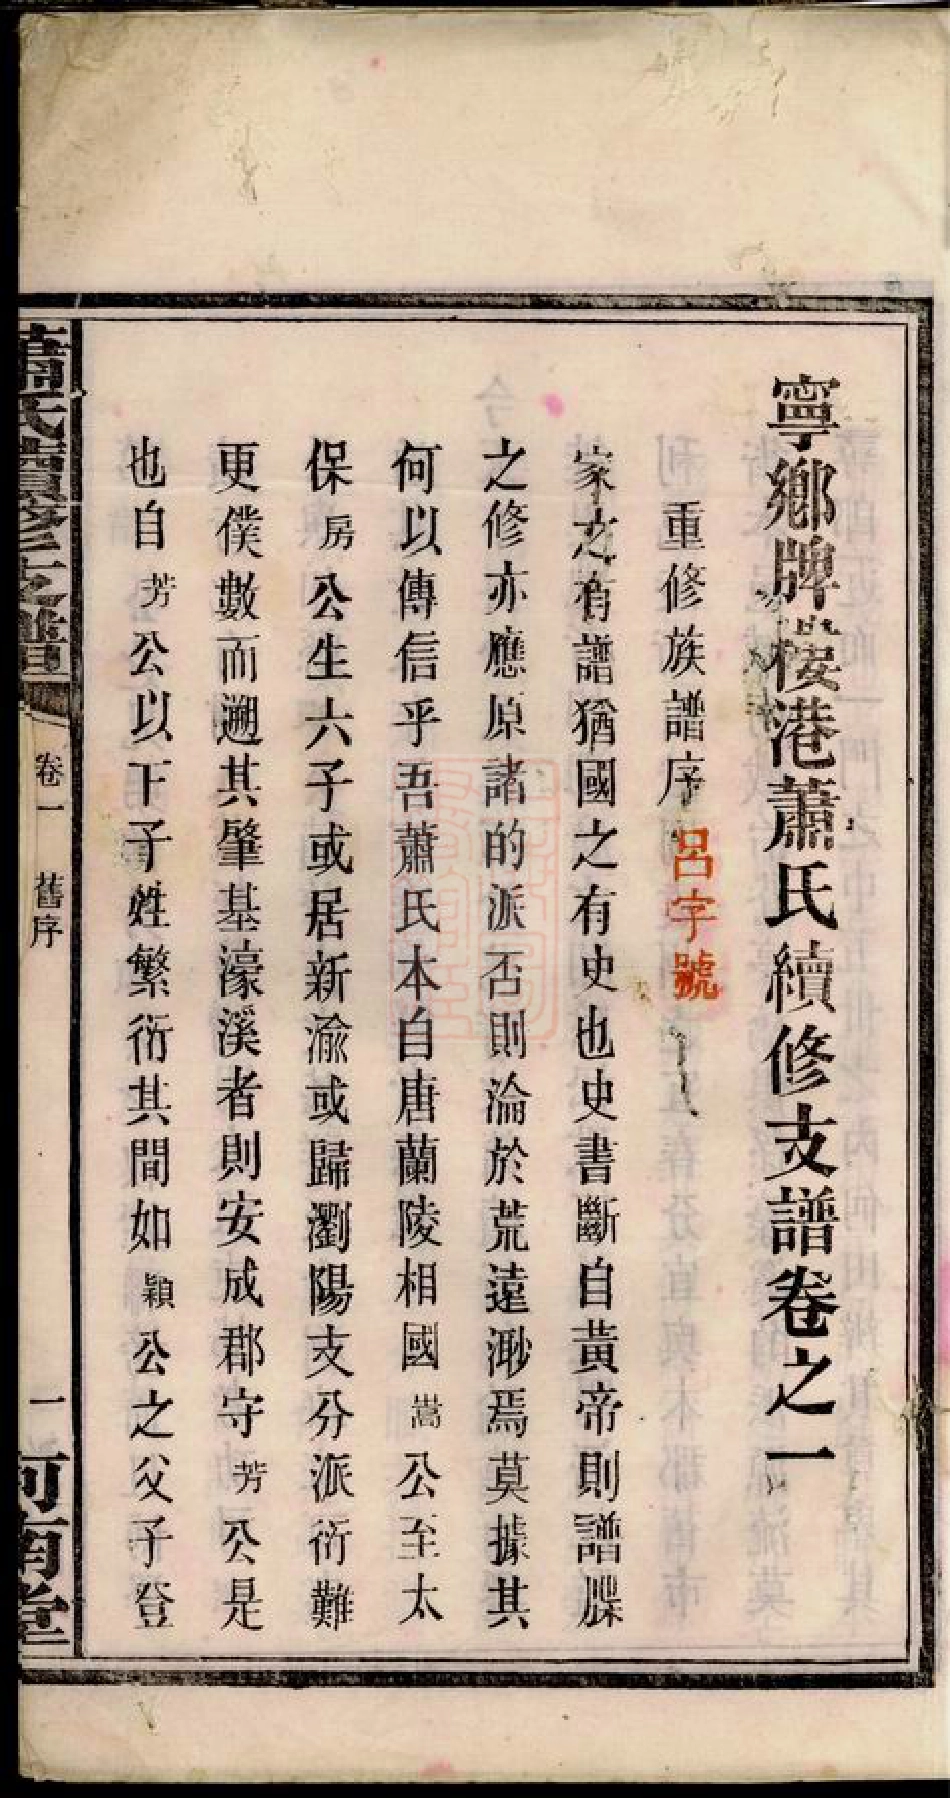 寧鄉牌樓港蕭氏續修支譜卷之一
重修族譜序
呂字號
家之有譜猶國之有史也史書斷自黃帝則譜牒
之修亦應原諸的派否則淪於荒遠渺焉莫據其
何以傳信乎吾蕭氏本自唐蘭陵相國嵩公至太
保房公生六子或居新渝或歸瀏陽支分派衍難
更僕數而遡其肇基濠溪者則安成郡守芳公是
也自芳公以下子姓繁衍其間如穎公之父子登
蕭氏續修支譜
卷一
舊序
一
河南堂